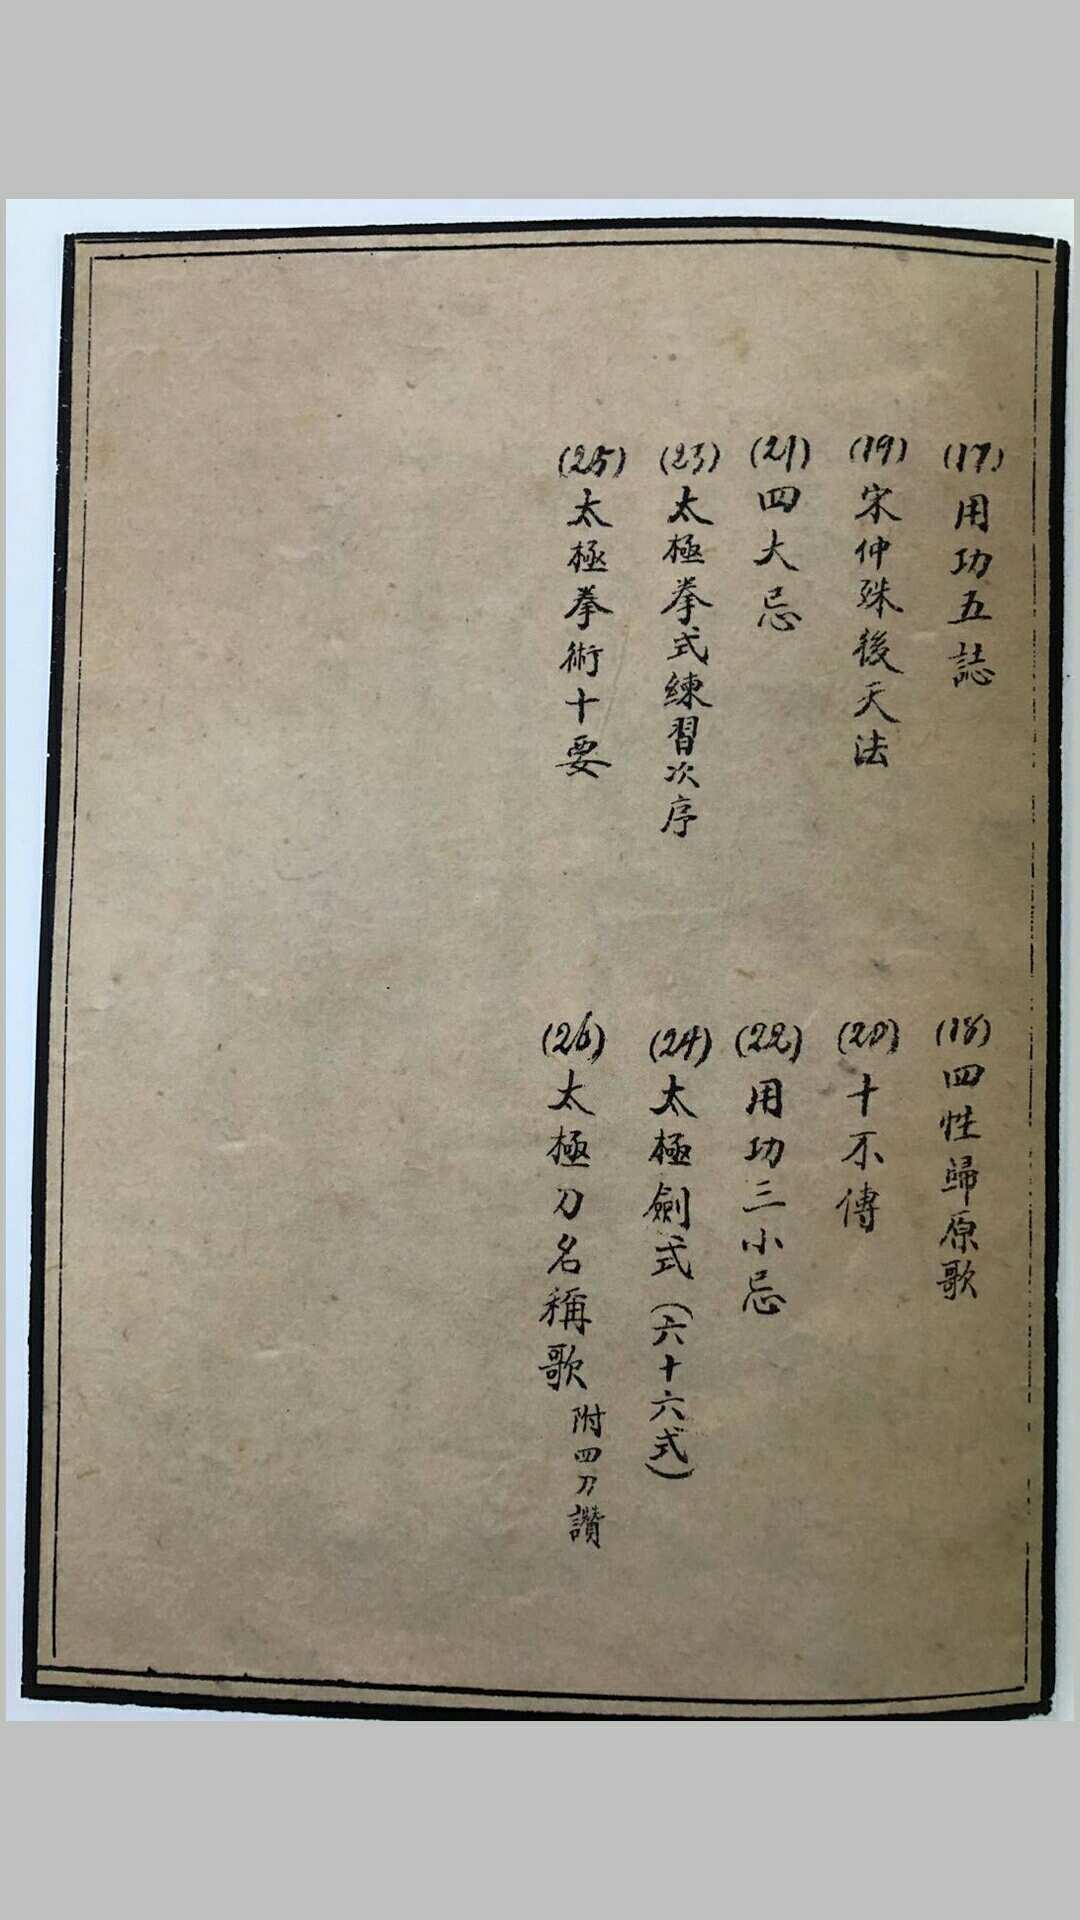 (17)用功五誌
(18)四性歸原歌
(19)宋仲殊後天法
(20)十不傳
(21)四大忌
(22)用功三小忌
(23)太極拳式練習次序
(24)太極劍式(六十六式)
(25)太極拳術十要
(26)太極刀名稱歌 附四刀讚